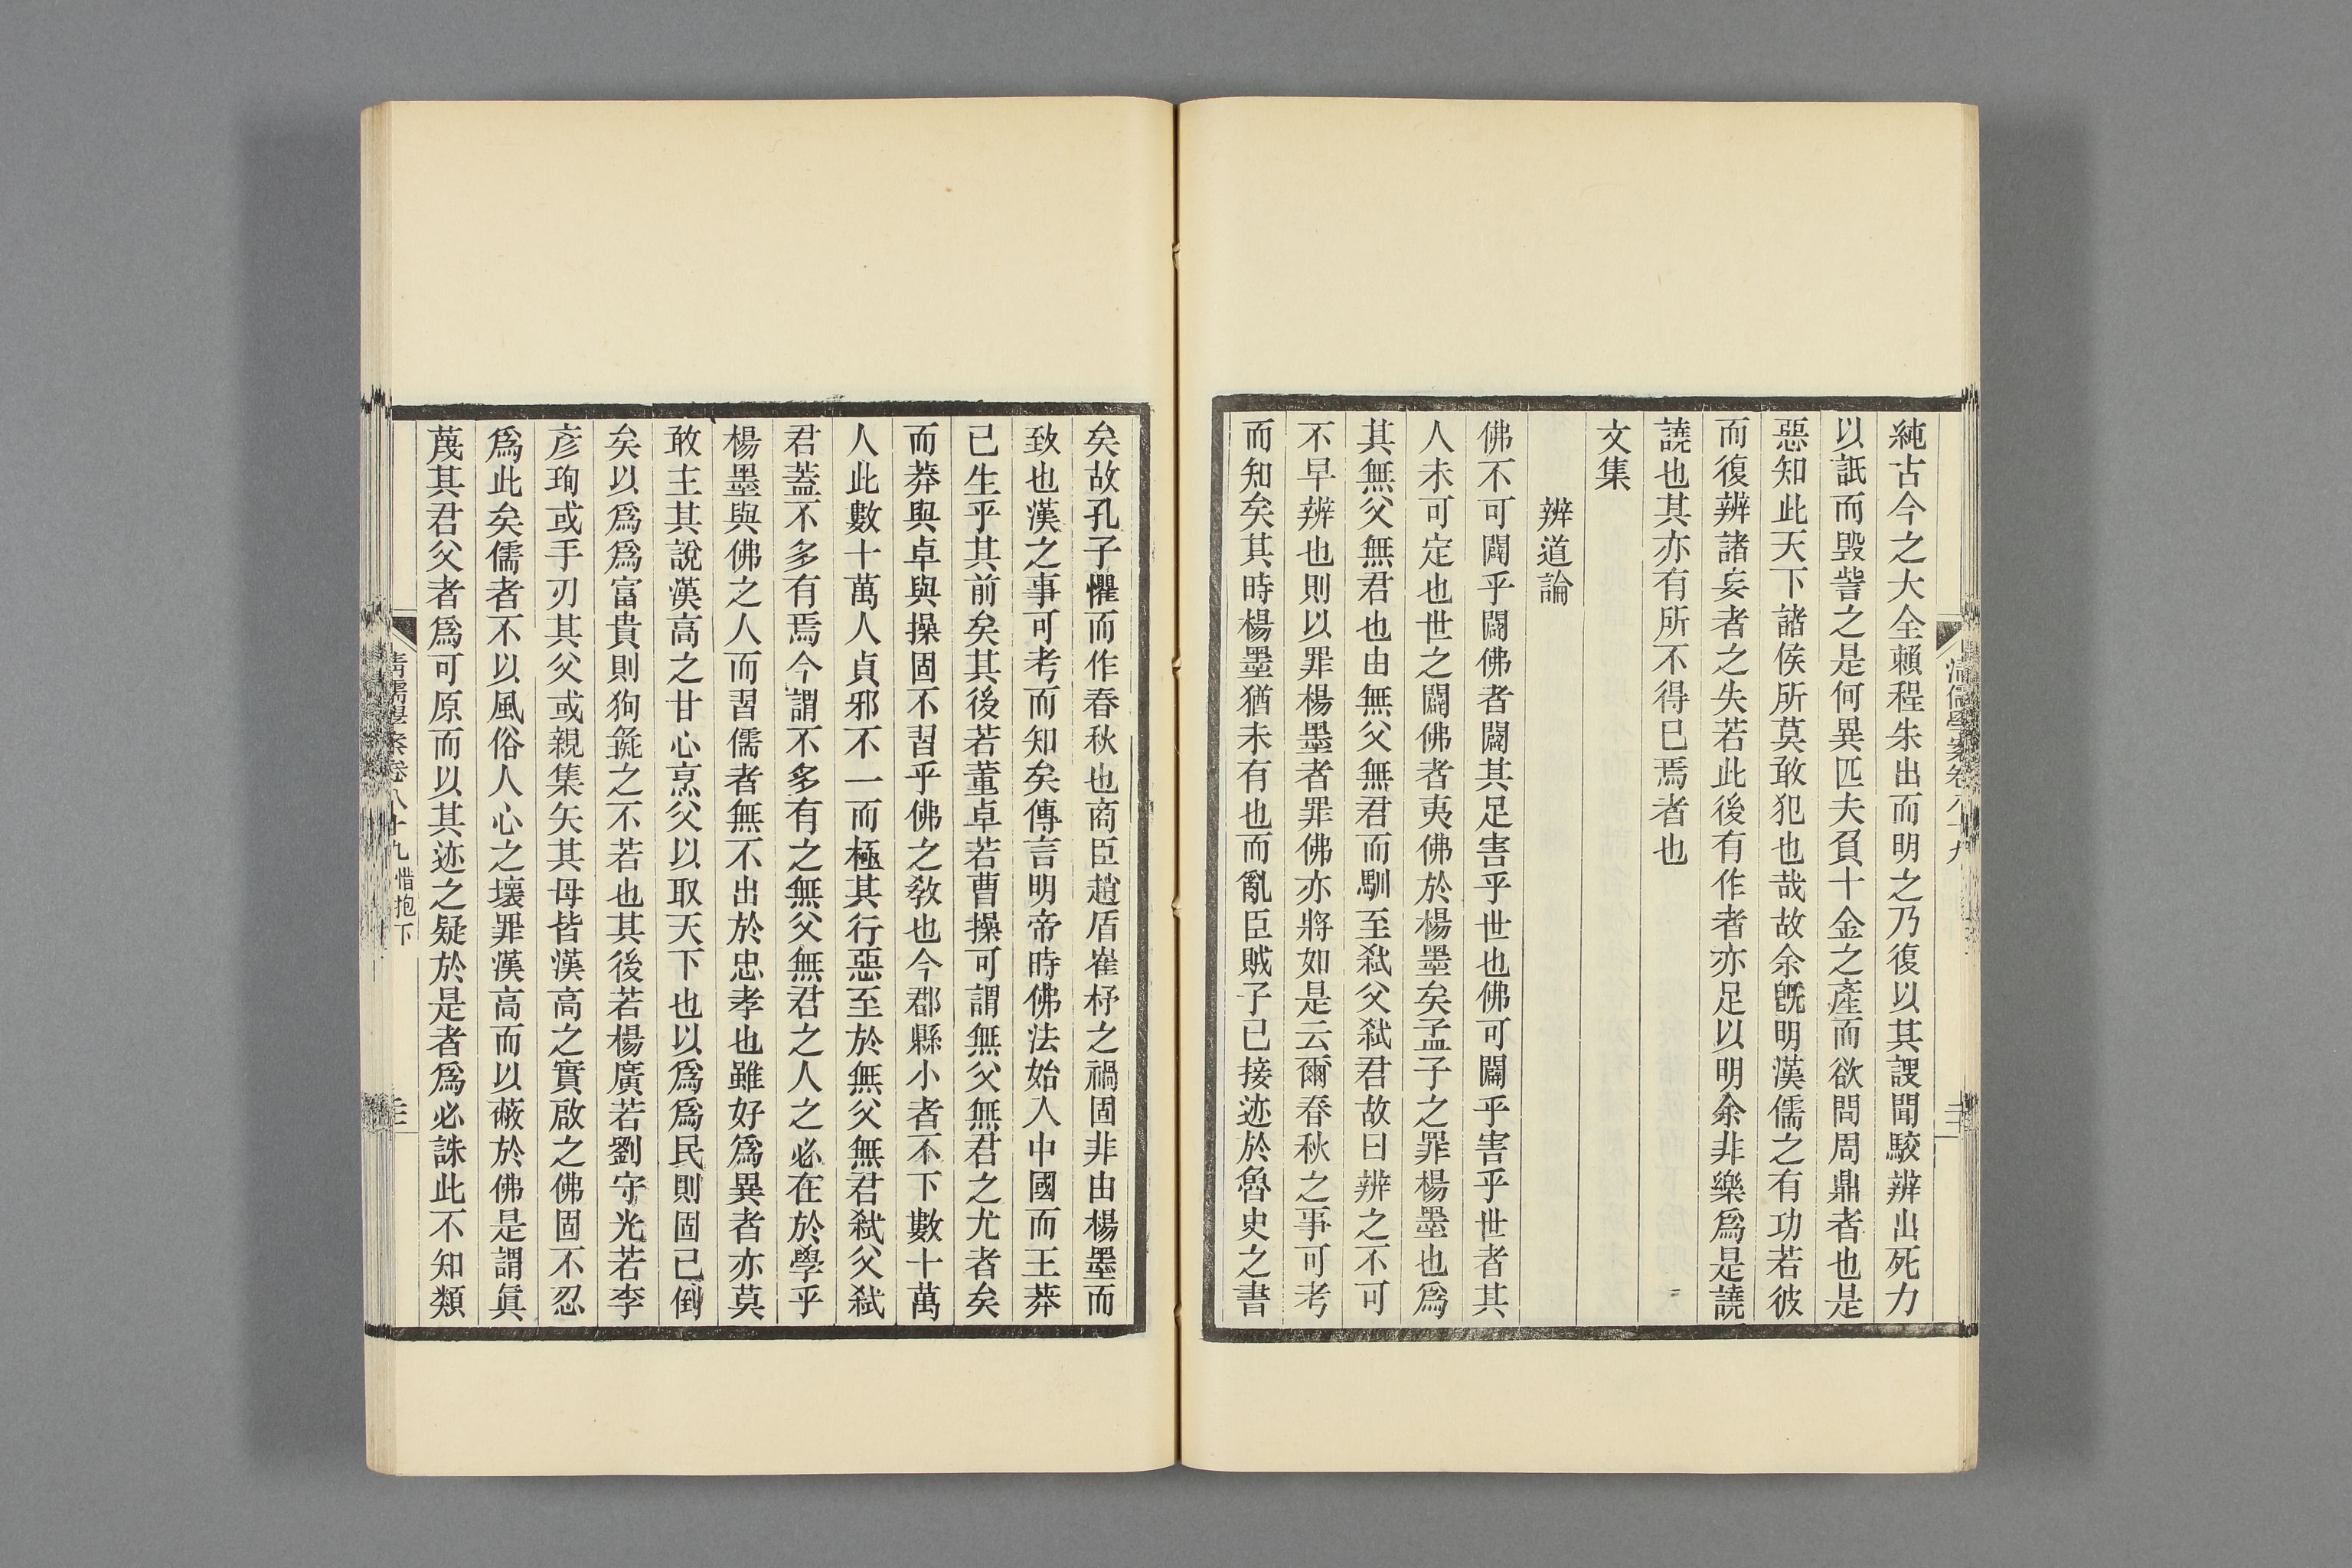 純古今之大全賴程朱出而明之乃復以其謏聞駮辨出死力
以詆而毀訾之是何異匹夫負十金之產而欲問周鼎者也是
惡知此天下諸侯所莫敢犯也哉故余旣明漢儒之有功若彼
而復辨諸妄者之失若此後有作者亦足以明余非樂爲是譊
譊也其亦有所不得已焉者也
文集
辨道論
佛不可闢乎闢佛者闢其足害乎世也佛可闢乎害乎世者其
人未可定也世之闢佛者夷佛於楊墨矣孟子之罪楊墨也爲
其無父無君也由無父無君而馴至弒父弒君故曰辨之不可
不早辨也則以罪楊墨者罪佛亦將如是云爾春秋之事可考
而知矣其時楊墨猶未有也而亂臣賊子已接迹於魯史之書
矣故孔子懼而作春秋也商臣趙盾崔杼之禍固非由楊墨而
致也漢之事可考而知矣傳言明帝時佛法始入中國而王莽
已生乎其前矣其後若董卓若曹操可謂無父無君之尤者矣
而莽與卓與操固不習乎佛之敎也今郡縣小者不下數十萬
人此數十萬人貞邪不一而極其行惡至於無父無君弒父弒
君蓋不多有焉今謂不多有之無父無君之人之必在於學乎
楊墨與佛之人而習儒者無不出於忠孝也雖好爲異者亦莫
敢主其說漢高之甘心烹父以取天下也以爲爲民則固已倒
矣以爲爲富貴則狗彘之不若也其後若楊廣若劉守光若李
彥珣或手刃其父或親集矢其母皆漢高之實啟之佛固不忍
爲此矣儒者不以風俗人心之壞罪漢高而以蔽於佛是謂眞
蔑其君父者爲可原而以其迹之疑於是者爲必誅此不知類
清儒學案卷八十九 惜抱下